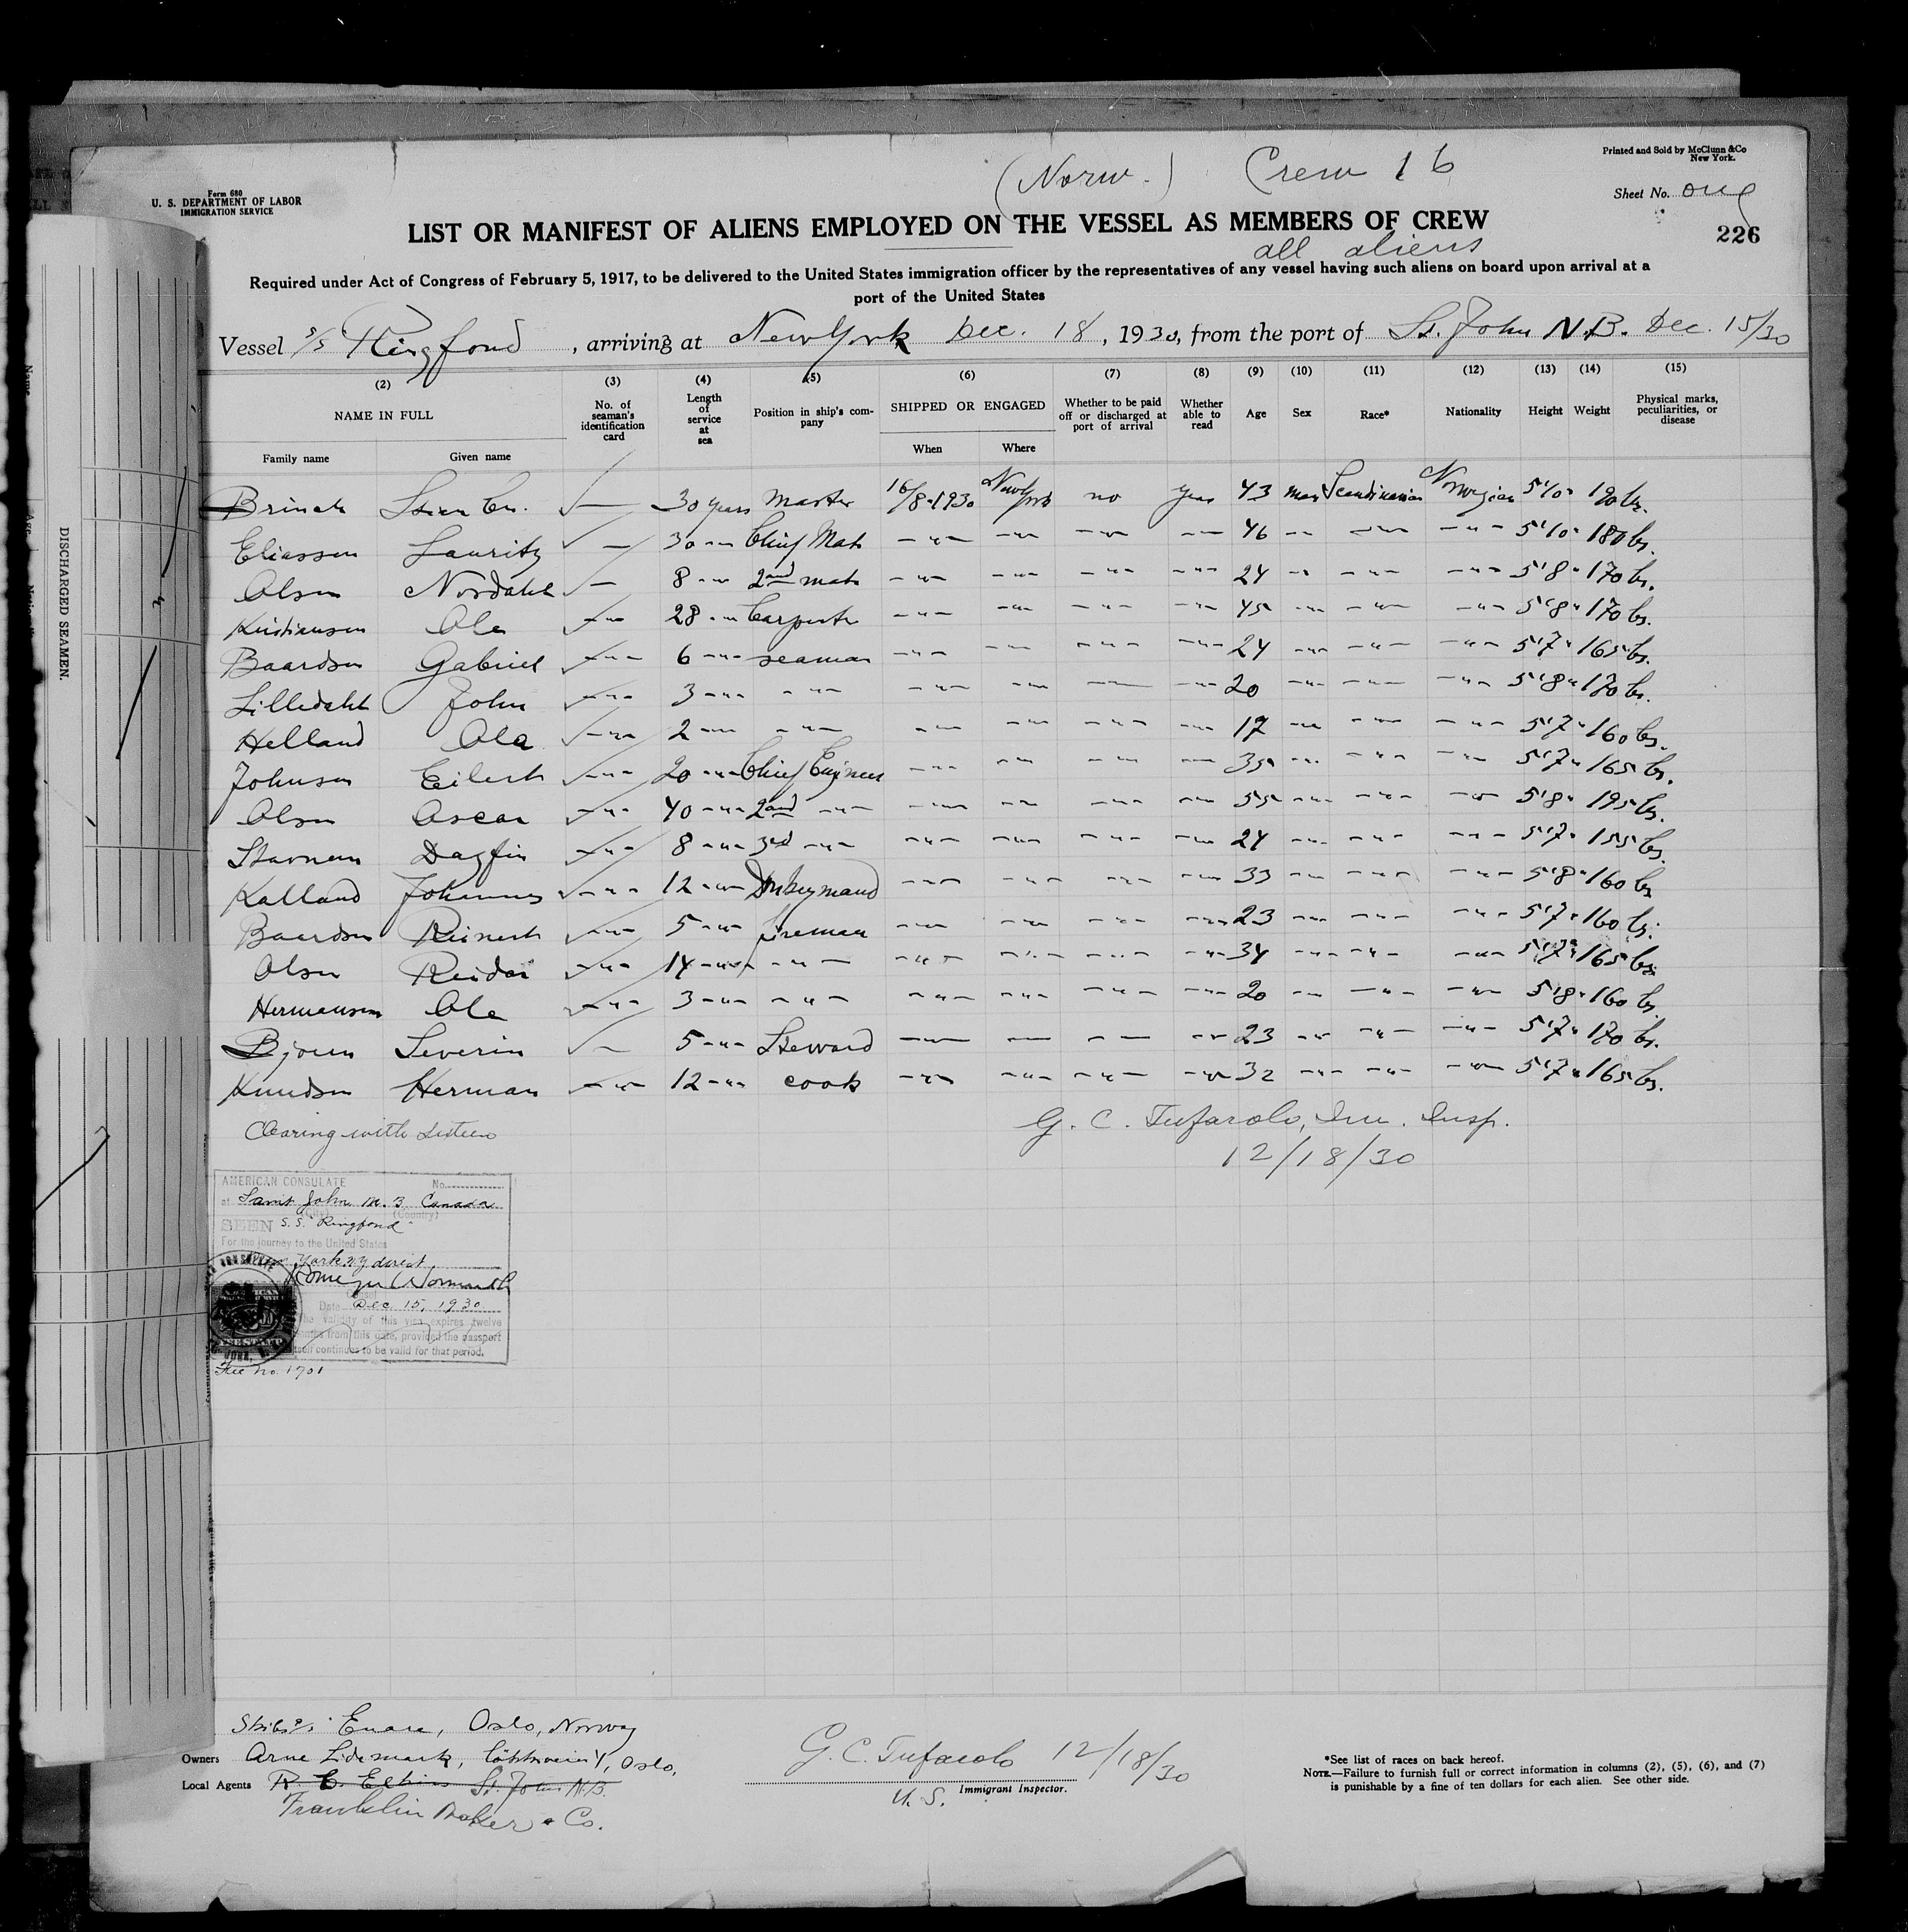 (Norw.) Crew 16
Printed and Sold by McClunn & Co
New York.
Form 680
U. S. DEPARTMENT OF LABOR
IMMIGRATION SERVICE
Sheet No. one
LIST OR MANIFEST OF ALIENS EMPLOYED ON THE VESSEL AS MEMBERS OF CREW
226
all aliens
Required under Act of Congress of February 5, 1917, to be delivered to the United States immigration officer by the representatives of any vessel having such aliens on board upon arrival at a
port of the United States
Vessel s/s Ringfond, arriving at New York Dec. 18, 1930, from the port of St. John N.B. Dec. 15/30
(2) (3) (4) (5) (6) (7) (8) (9) (10) (11) (12) (13) (14) (15)
NAME IN FULL
Family name Given name
No. of seaman's identification card
Length of service at sea
Position in ship's company
SHIPPED OR ENGAGED
When Where
Whether to be paid off or discharged at port of arrival
Whether able to read
Age
Sex
Race*
Nationality
Height
Weight
Physical marks, peculiarities, or disease
Brinch — 30 years Master 16/8-1930 New York no yes 43 man Scandinavian Norwegian 5'10" 190 lbs.
Eliassen Lauritz — 30 -"- Chief Mate -"- -"- -"- -"- 46 -"- -"- -"- 5'10" 180 lbs.
Olsen Nordahl — 8 -"- 2nd mate -"- -"- -"- -"- 24 -"- -"- -"- 5'8" 170 lbs.
Kristiansen Ole -"- 28 -"- Carpenter -"- -"- -"- -"- 45 -"- -"- -"- 5'8" 170 lbs.
Baardsen Gabriel -"- 6 -"- seaman -"- -"- -"- -"- 24 -"- -"- -"- 5'7" 165 lbs.
Lilledahl John -"- 3 -"- -"- -"- -"- -"- -"- 20 -"- -"- -"- 5'8" 170 lbs.
Helland Ola -"- 2 -"- -"- -"- -"- -"- -"- 17 -"- -"- -"- 5'7" 160 lbs.
Johnsen Eilert -"- 20 -"- Chief Engineer -"- -"- -"- -"- 35 -"- -"- -"- 5'7" 165 lbs.
Olsen Oscar -"- 40 -"- 2nd -"- -"- -"- -"- -"- 55 -"- -"- -"- 5'8" 195 lbs.
Stavnem Dagfin -"- 8 -"- 3rd -"- -"- -"- -"- -"- 24 -"- -"- -"- 5'7" 155 lbs.
Kalland Johannes -"- 12 -"- Dnkeymand -"- -"- -"- -"- 33 -"- -"- -"- 5'8" 160 lbs
Baardsen Reinert -"- 5 -"- fireman -"- -"- -"- -"- 23 -"- -"- -"- 5'7" 160 lbs.
Olsen Reidar -"- 14 -"- -"- -"- -"- -"- -"- 34 -"- -"- -"- 5'7" 165 lbs.
Hermansen Ole -"- 3 -"- -"- -"- -"- -"- -"- 20 -"- -"- -"- 5'8" 160 lbs.
Severin — 5 -"- Steward -"- — -"- -"- 23 -"- -"- -"- 5'7" 170 lbs.
Knudsen Herman -"- 12 -"- cook -"- -"- -"- -"- 32 -"- -"- -"- 5'7" 165 lbs.
Clearing with sixteen
G. C. Tufarolo, Im. Insp.
12/18/30
AMERICAN CONSULATE No.
at Saint John N.B. Canada
(City) (Country)
SEEN S.S. "Ringfond"
For the journey to the United States
York NY direct
Consul
Date Dec. 15, 1930
The validity of this visa expires twelve
months from this date, provided the passport
itself continues to be valid for that period.
Fee No. 1701
DISCHARGED SEAMEN.
Oslo, Norway
Owners Arne Oslo,
Local Agents R. C. Elkin St. John N.B.
Franklin Baker & Co.
G. C. Tufarolo 12/18/30
U. S. Immigrant Inspector.
*See list of races on back hereof.
NOTE.—Failure to furnish full or correct information in columns (2), (5), (6), and (7)
is punishable by a fine of ten dollars for each alien. See other side.